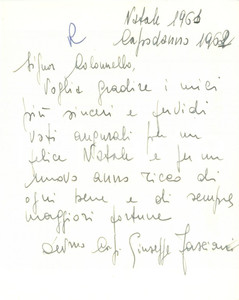 Natale 1961
Capodanno 1962
R
Signor Colonnello,
Voglia gradire i miei
più sinceri e fervidi
voti augurali per un
felice Natale e per un
nuovo anno ricco di
ogni bene e di sempre
maggiori fortune
Cap. Giuseppe